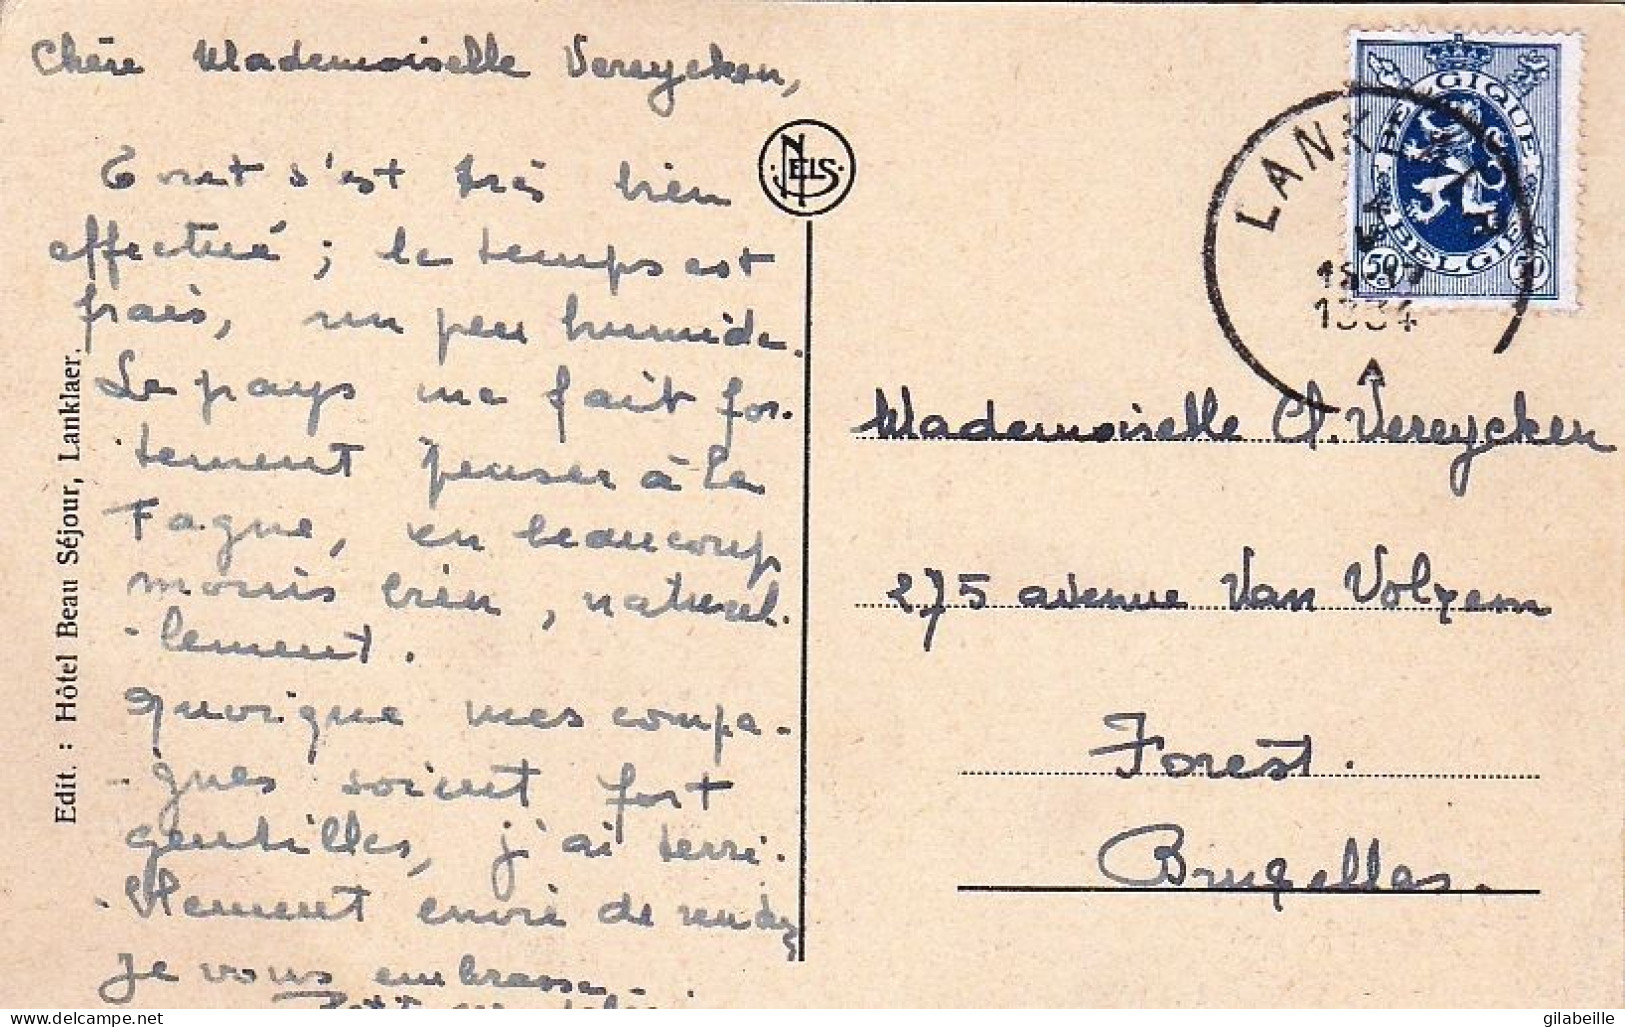 Chère Mademoiselle Vereycken,
Tout s'est très bien
effectué ; le temps est
frais, un peu humide.
Le pays me fait for-
tement penser à la
Fagne, en beaucoup
moins bien, naturel-
-lement.
Quoique mes compa-
-gnes soient fort
gentilles, j'ai terri-
-blement envie de
Je vous embrasse.
Edit. : Hôtel Beau Séjour, Lanklaer.
NELS
BELGIQUE
BELGIË
50
50
LANK
1934
A
Mademoiselle Cl. Vereycken
275 avenue Van Volxem
Forest.
Bruxelles.
delcampe.net
gilabeille